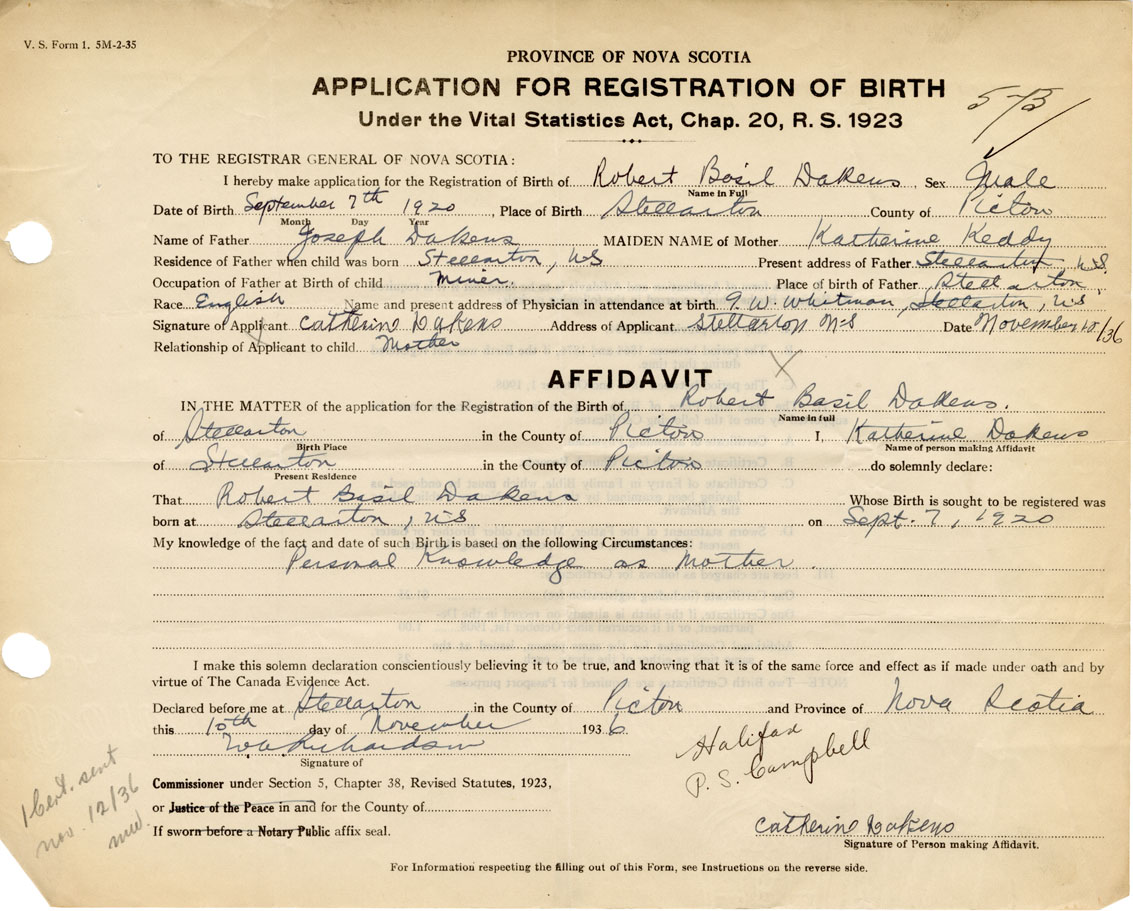 V. S. Form 1. 5M-2-35
PROVINCE OF NOVA SCOTIA
APPLICATION FOR REGISTRATION OF BIRTH
Under the Vital Statistics Act, Chap. 20, R. S. 1923
TO THE REGISTRAR GENERAL OF NOVA SCOTIA:
I hereby make application for the Registration of Birth of Robert Basil Dakens, Sex Male
Name in Full
Date of Birth September 7th 1920, Place of Birth Stellarton County of Pictou
Month Day Year
Name of Father Joseph Dakens MAIDEN NAME of Mother Katherine Keddy
Residence of Father when child was born Stellarton, NS Present address of Father Stellarton NS.
Occupation of Father at Birth of child Miner. Place of birth of Father Stellarton
Race English Name and present address of Physician in attendance at birth G. W. Whitman, Stellarton, NS
Signature of Applicant Catherine Dakens Address of Applicant Stellarton NS Date November 10/36
Relationship of Applicant to child Mother
AFFIDAVIT
IN THE MATTER of the application for the Registration of the Birth of Robert Basil Dakens.
Name in full
of Stellarton in the County of Pictou I, Katherine Dakens
Birth Place Name of person making Affidavit
of Stellarton in the County of Pictou do solemnly declare:
Present Residence
That Robert Basil Dakens Whose Birth is sought to be registered was
born at Stellarton, NS on Sept. 7, 1920
My knowledge of the fact and date of such Birth is based on the following Circumstances:
Personal Knowledge as Mother.
I make this solemn declaration conscientiously believing it to be true, and knowing that it is of the same force and effect as if made under oath and by
virtue of The Canada Evidence Act.
Declared before me at Stellarton in the County of Pictou and Province of Nova Scotia
this 10th day of November 1936.
W A Richardson
Signature of
Halifax
P. S. Campbell
Commissioner under Section 5, Chapter 38, Revised Statutes, 1923,
or Justice of the Peace in and for the County of
If sworn before a Notary Public affix seal.
1 Cert. sent
nov. 12/36
Catherine Dakens
Signature of Person making Affidavit.
For Information respecting the filling out of this Form, see Instructions on the reverse side.